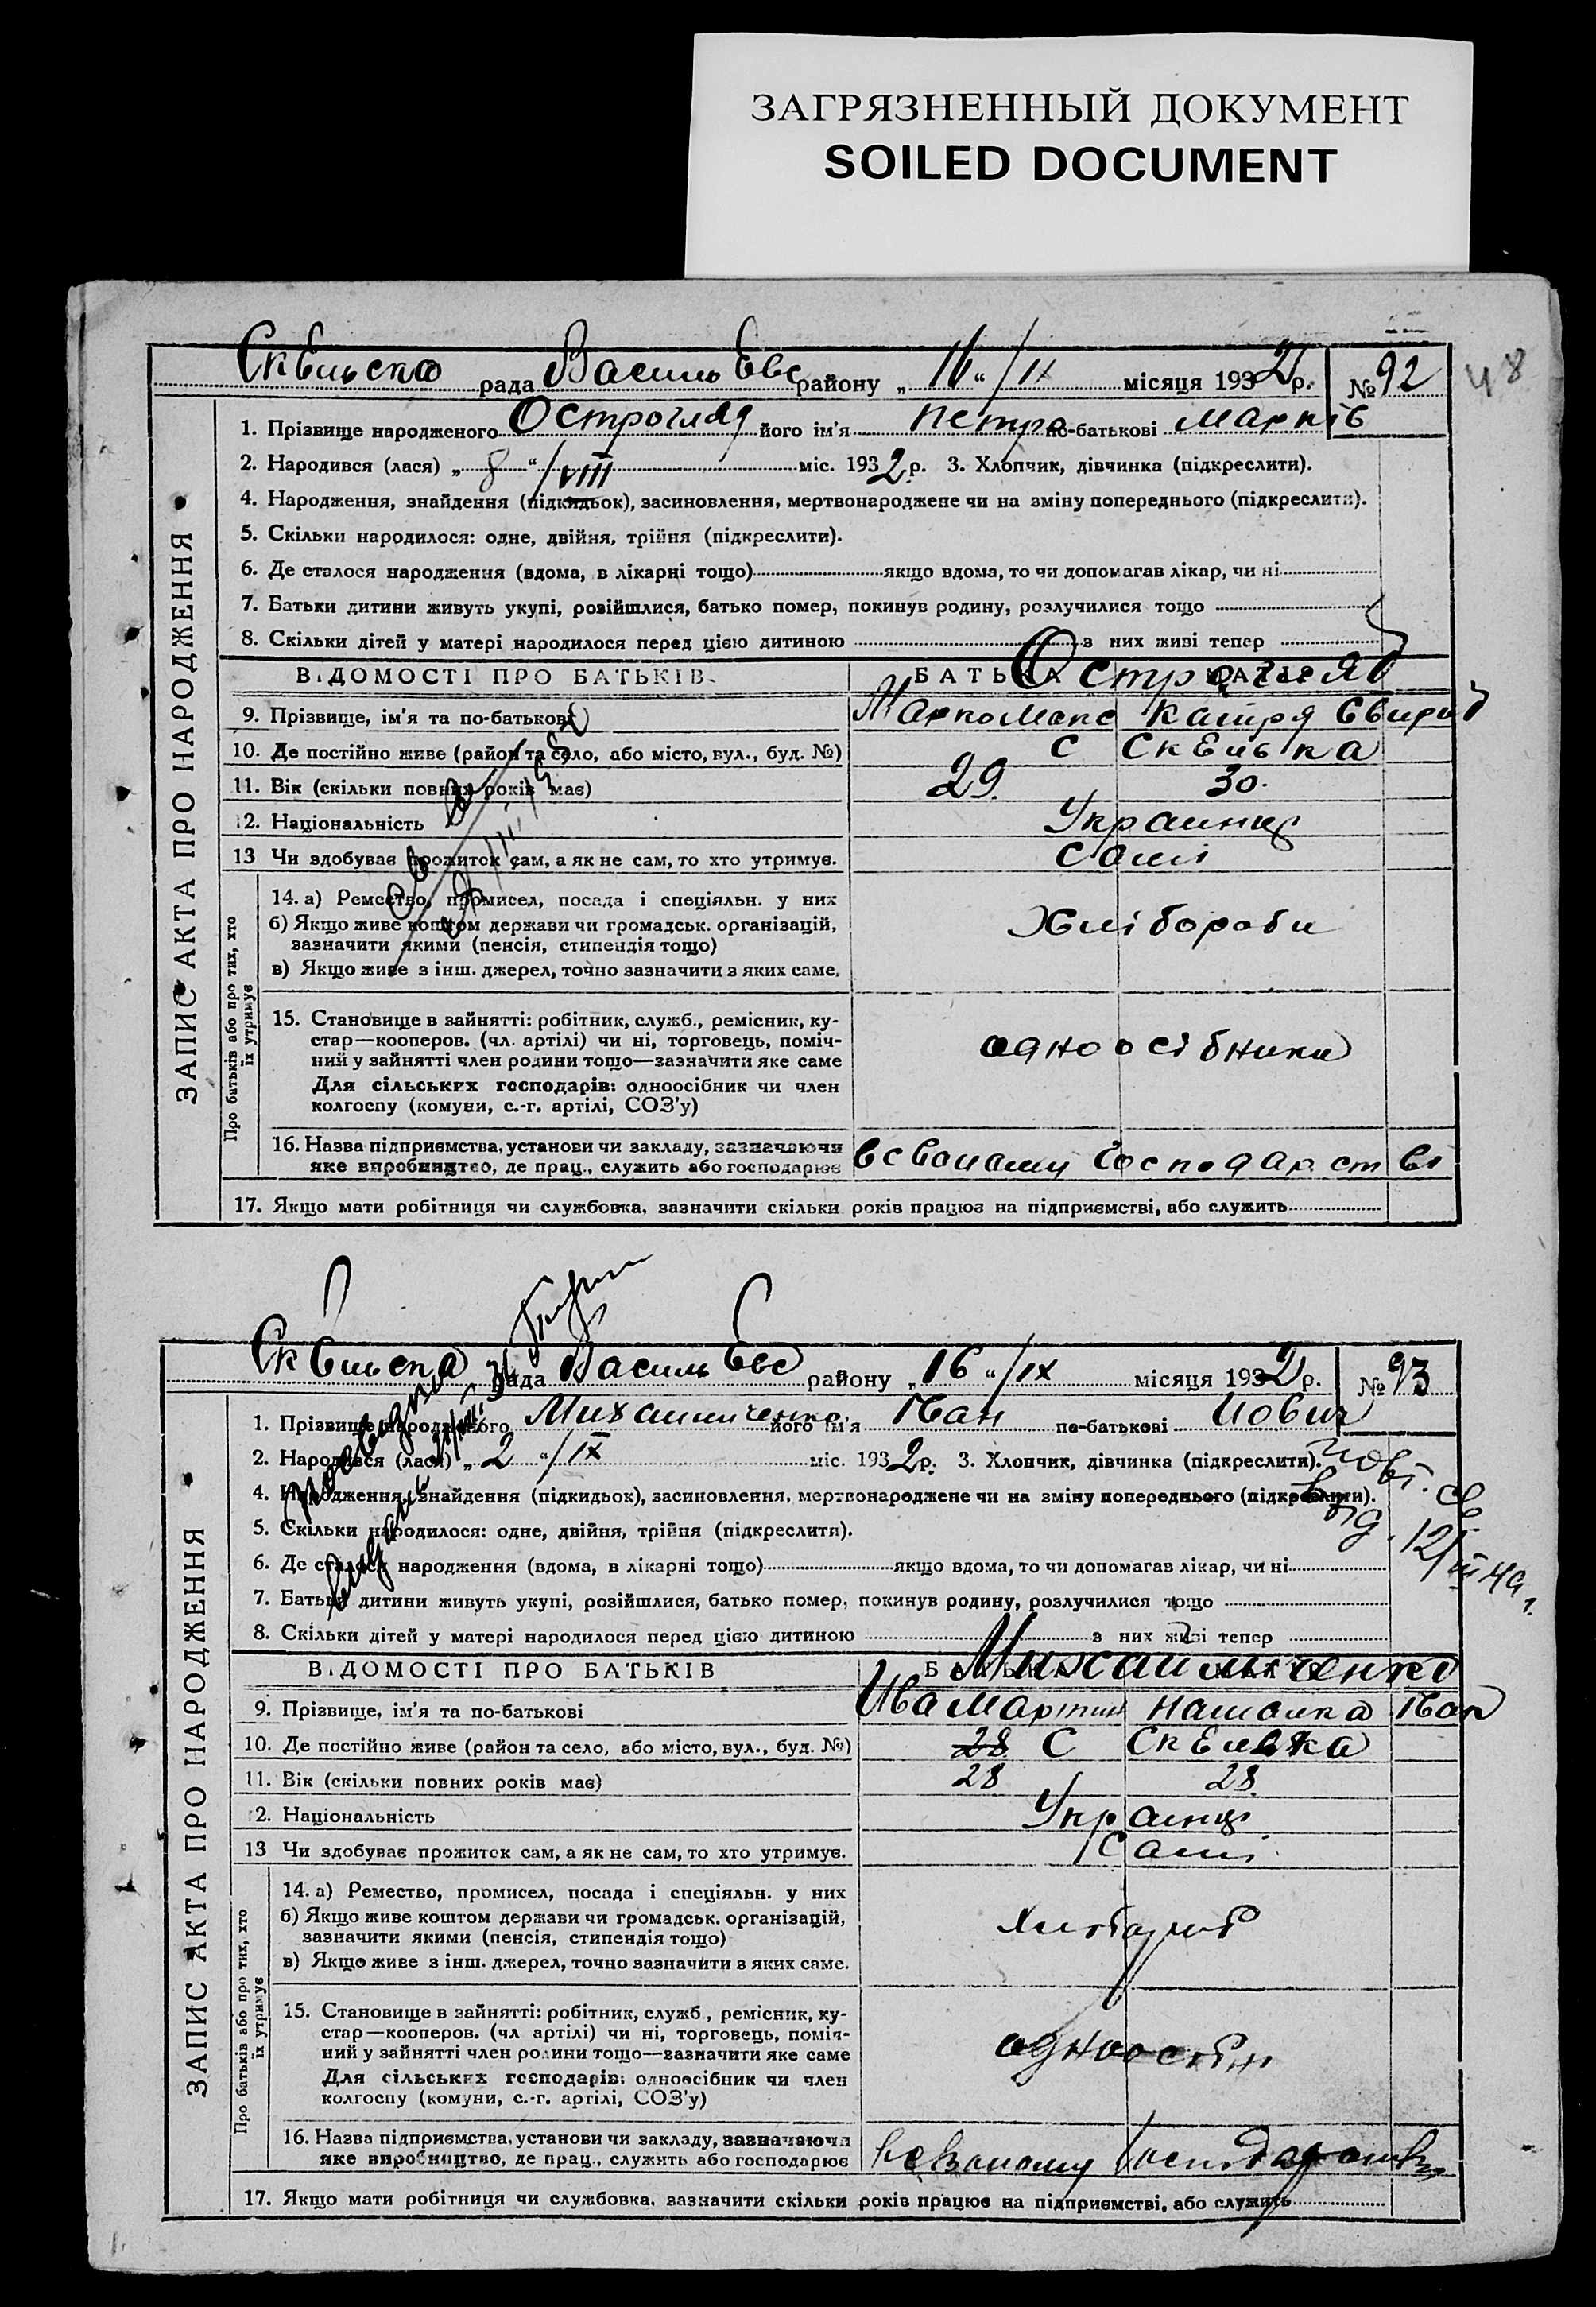 ЗАГРЯЗНЕННЫЙ ДОКУМЕНТ
SOILED DOCUMENT
48
Скельска рада Василь Евс району „ 16 “ /IX місяця 1932 р. № 92
1. Прізвище народженого Острогляд його ім'я Петро по-батькові Марків
2. Народився (лася) „ 8 “ /VIII міс. 1932 р. 3. Хлопчик, дівчинка (підкреслити).
4. Народження, знайдення (підкидьок), засиновлення, мертвонароджене чи на зміну попереднього (підкреслити).
5. Скільки народилося: одне, двійня, трійня (підкреслити).
6. Де сталося народження (вдома, в лікарні тощо) якщо вдома, то чи допомагав лікар, чи ні
7. Батьки дитини живуть укупі, розійшлися, батько помер, покинув родину, розлучилися тощо
8. Скільки дітей у матері народилося перед цією дитиною з них живі тепер
ВІДОМОСТІ ПРО БАТЬКІВ БАТЬКА Остогляд
9. Прізвище, ім'я та по-батькові Марко Макс Катря Свирид
10. Де постійно живе (район та село, або місто, вул., буд. №) С Скелька
11. Вік (скільки повних років має) 29. 30.
12. Національність Украинці
13 Чи здобуває прожиток сам, а як не сам, то хто утримує. Самі
14. а) Ремество, промисел, посада і спеціяльн. у них
б) Якщо живе коштом держави чи громадськ. організацій,
зазначити якими (пенсія, стипендія тощо) Хлібороби
в) Якщо живе з інш. джерел, точно зазначити з яких саме.
15. Становище в зайнятті: робітник, служб., ремісник, ку-
стар—кооперов. (чл. артілі) чи ні, торговець, поміч-
ний у зайнятті член родини тощо—зазначити яке саме одноосібники
Для сільських господарів: одноосібник чи член
колгоспу (комуни, с.-г. артілі, СОЗ'у)
16. Назва підприємства, установи чи закладу, зазначаючи
яке виробництво, де прац., служить або господарює в своиому господарстві
17. Якщо мати робітниця чи службовка, зазначити скільки років працює на підприємстві, або служить
ЗАПИС АКТА ПРО НАРОДЖЕННЯ
Про батьків або про тих, хто
їх утримує
Скельска рада Василь Евс району „ 16 “ /IX місяця 1932 р. № 93
1. Прізвище народженого Михайличенко його ім'я Іван по-батькові Йович
2. Народився (лася) „ 2 “ /IX міс. 1932 р. 3. Хлопчик, дівчинка (підкреслити).
4. Народження, знайдення (підкидьок), засиновлення, мертвонароджене чи на зміну попереднього (підкреслити).
5. Скільки народилося: одне, двійня, трійня (підкреслити).
6. Де сталося народження (вдома, в лікарні тощо) якщо вдома, то чи допомагав лікар, чи ні
7. Батьки дитини живуть укупі, розійшлися, батько помер, покинув родину, розлучилися тощо
8. Скільки дітей у матері народилося перед цією дитиною з них живі тепер
ВІДОМОСТІ ПРО БАТЬКІВ Михайличенко
9. Прізвище, ім'я та по-батькові Ива Мартин Наталка Іван
10. Де постійно живе (район та село, або місто, вул., буд. №) 28 С Скелька
11. Вік (скільки повних років має) 28 28
12. Національність Украинці
13 Чи здобуває прожиток сам, а як не сам, то хто утримує. Самі
14. а) Ремество, промисел, посада і спеціяльн. у них
б) Якщо живе коштом держави чи громадськ. організацій,
зазначити якими (пенсія, стипендія тощо)
в) Якщо живе з інш. джерел, точно зазначити з яких саме.
15. Становище в зайнятті: робітник, служб., ремісник, ку-
стар—кооперов. (чл артілі) чи ні, торговець, поміч-
ний у зайнятті член родини тощо—зазначити яке саме одноосібн
Для сільських господарів: одноосібник чи член
колгоспу (комуни, с.-г. артілі, СОЗ'у)
16. Назва підприємства, установи чи закладу, зазначаючи
яке виробництво, де прац., служить або господарює в своиому господарстві
17. Якщо мати робітниця чи службовка, зазначити скільки років працює на підприємстві, або служить
ЗАПИС АКТА ПРО НАРОДЖЕННЯ
Про батьків або про тих, хто
їх утримує